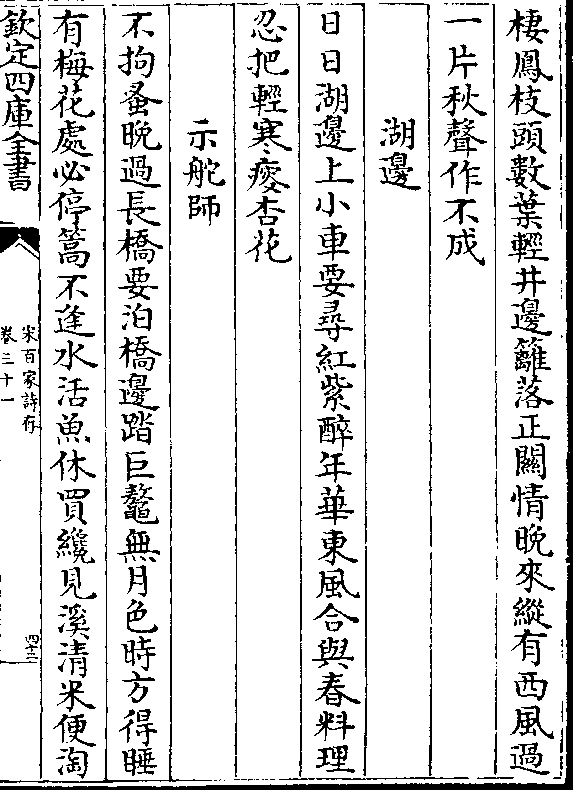 棲鳳枝頭數葉輕井邊籬落正關情晚來縱有西風過
一片秋聲作不成
湖邊
日日湖邊上小車要尋紅紫醉年華東風合與春料理
忍把輕寒瘦杏花
示舵師
不拘蚤晚過長橋要泊橋邊踏巨鼇無月色時方得睡
有梅花處必停篙不逢水活魚休買纔見溪清米便淘
欽定四庫全書
宋百家詩存
卷三十一
四十三